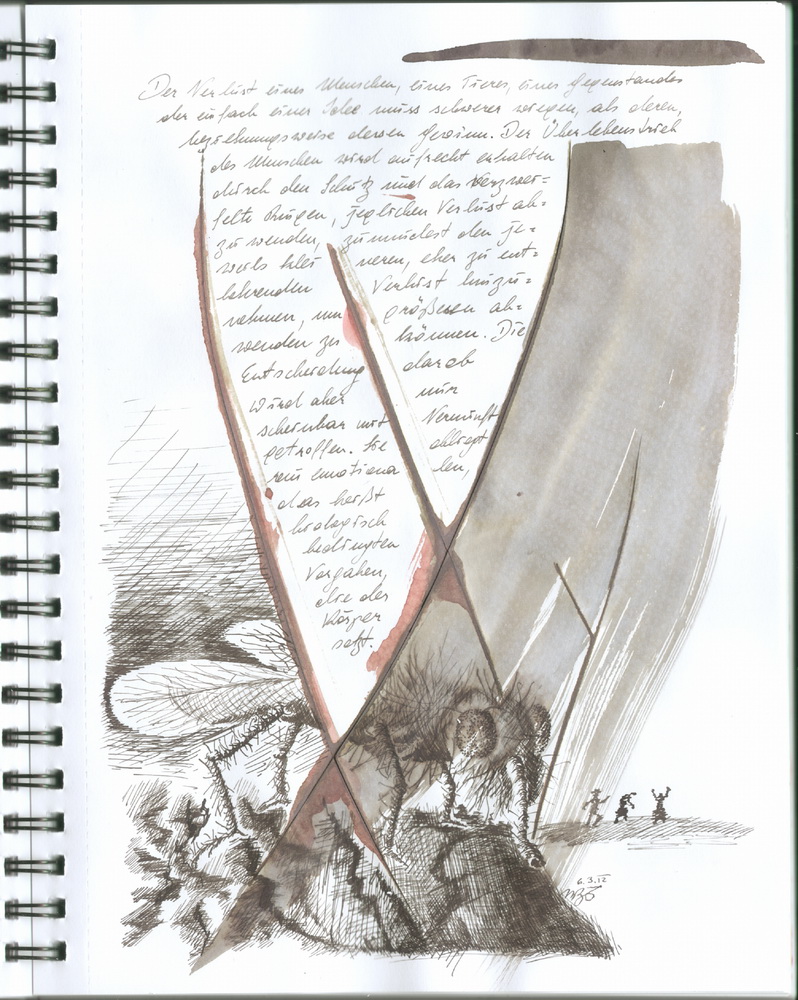 Der Verlust eines Menschen, eines Tieres, eines Gegenstandes
oder einfach einer Idee muss schwerer wiegen, als deren,
beziehungsweise dessen Gewinn. Der Überlebenstrieb
des Menschen wird aufrecht erhalten
durch den Schutz und das verzwei=
felte Ringen, jeglichen Verlust ab=
zu wenden, zumindest den je=
weils klei neren, eher zu ent=
behrenden Verlust hinzu=
nehmen, um größeren ab=
wenden zu können. Die
Entscheidung darob
wird aber nur
scheinbar mit Vernunft
getroffen. Sie obliegt
rein emotiona len,
das heißt
biologisch
bedingten
Vorgaben,
die der
Körper
setzt.
6.3.12